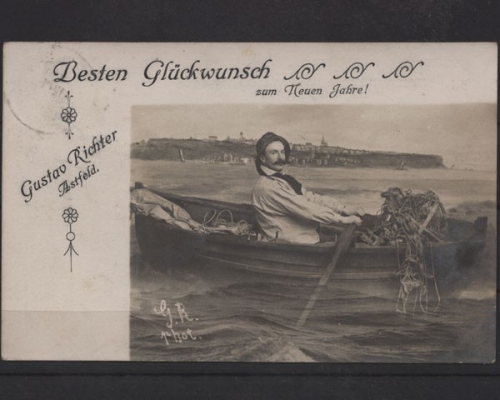 Besten Glückwunsch
zum Neuen Jahre!
Gustav Richter
Astfeld.
G. R.
phot.